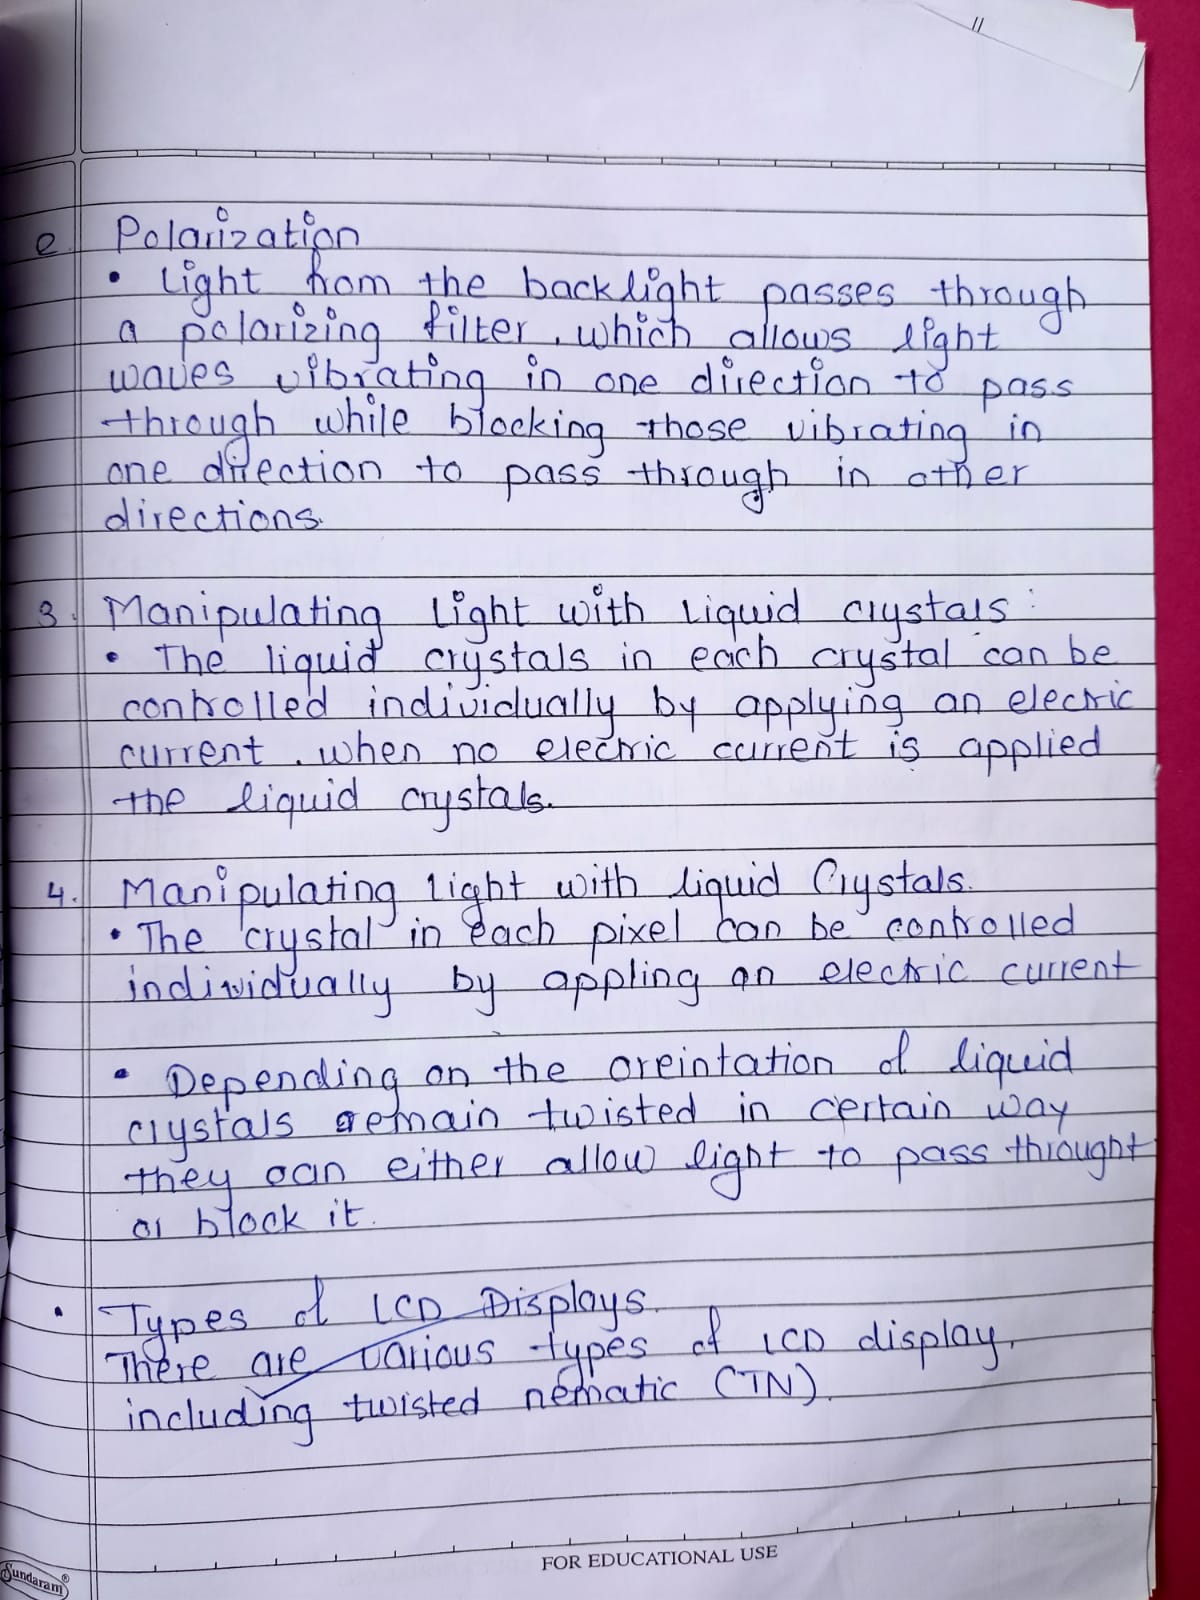 e. Polarization
• Light from the backlight passes through
a polarizing filter, which allows light
waves vibrating in one direction to pass
through while blocking those vibrating in
one direction to pass through in other
directions.
3. Manipulating Light with Liquid crystals:
• The liquid crystals in each crystal can be
controlled individually by applying an electric
current. when no electric current is applied
the liquid crystals.
4. Manipulating light with liquid Crystals.
• The crystal in each pixel can be controlled
individually by appling an electric current
• Depending on the oreintation of liquid
crystals remain twisted in certain way
they can either allow light to pass throught
or block it.
• Types of LCD Displays.
There are various types of LCD display,
including twisted nematic (TN).
FOR EDUCATIONAL USE
Sundaram®